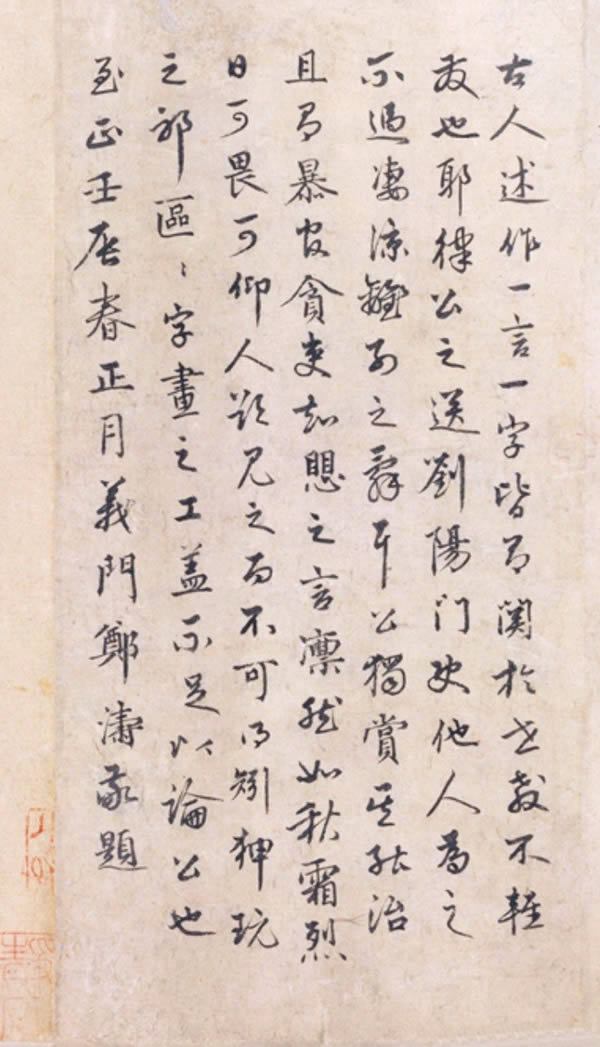 古人述作一言一字皆有関於世教不輕
發也耶律公之送劉陽門使他人為之
不過凄涼離別之辭耳公獨賞其能治
且有暴官貪吏知愳之言凛然如秋霜烈
日可畏可仰人欲見之而不可得矧狎玩
之邪區〻字畫之工盖不足以論公也
至正壬辰春正月義門鄭濤敬題